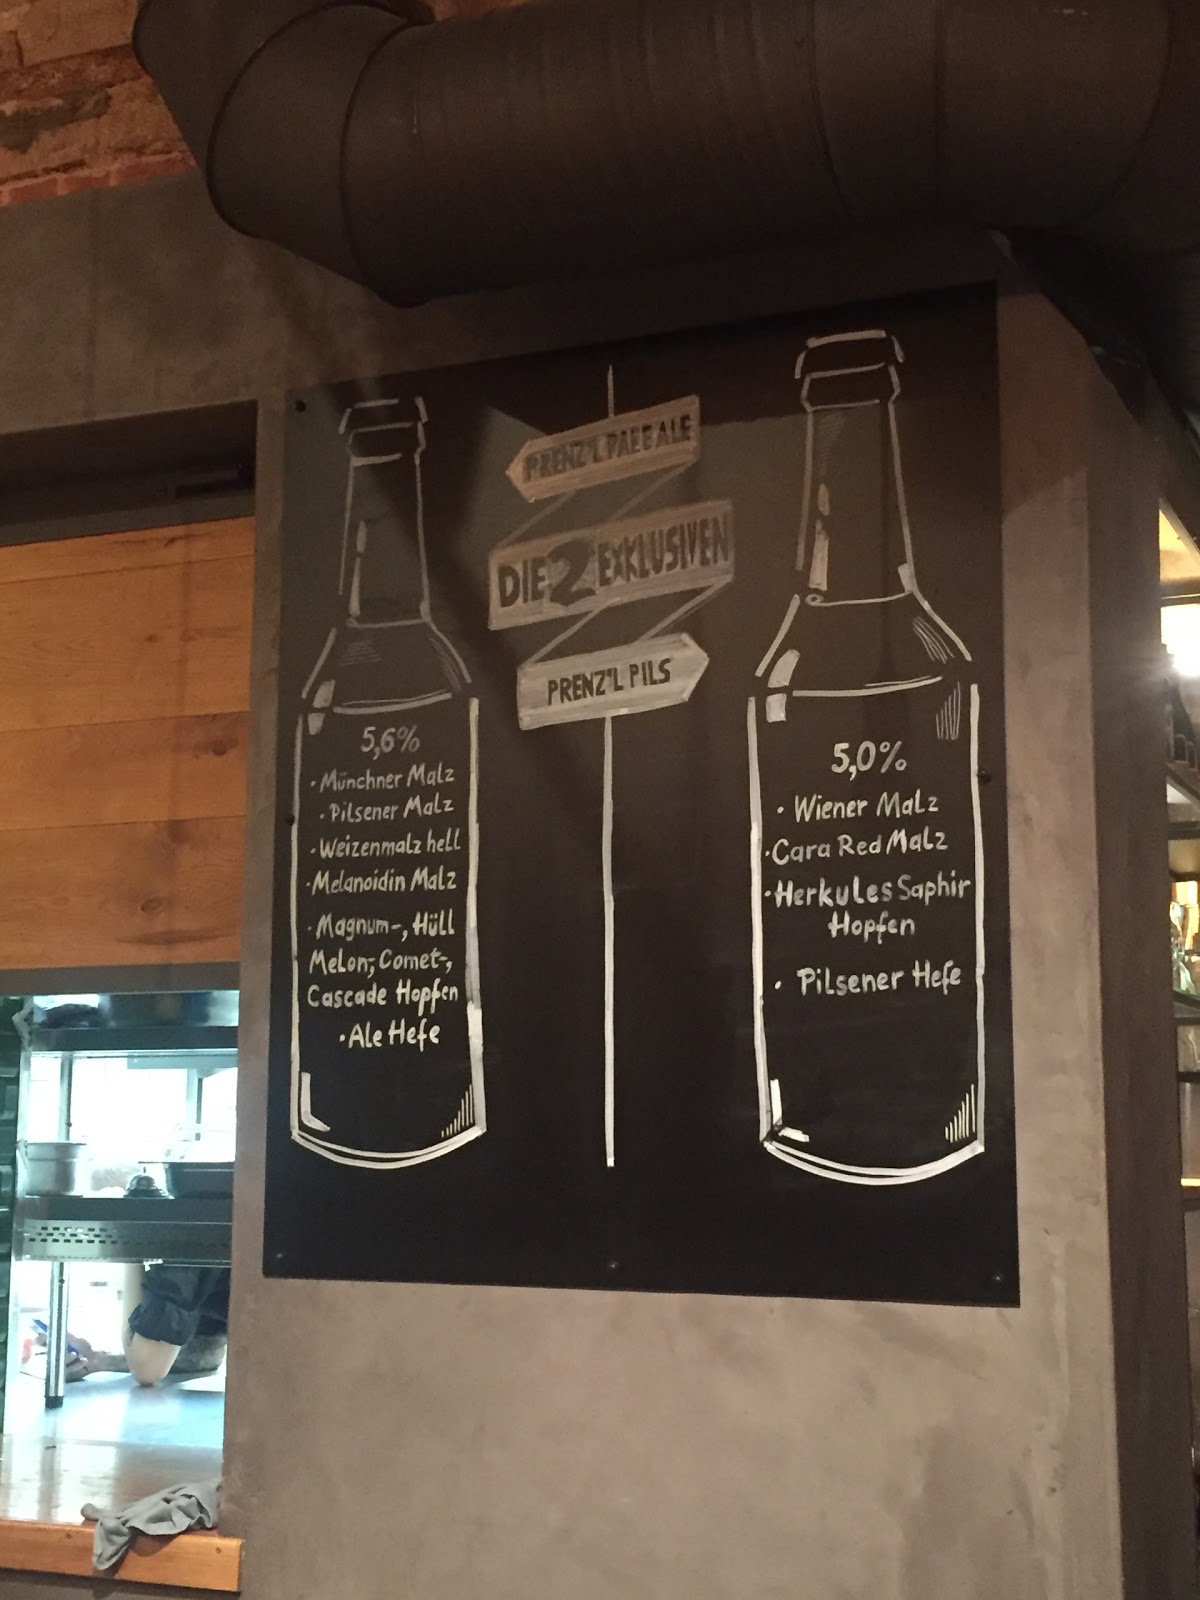 PRENZ'L PALE ALE
DIE 2 EXKLUSIVEN
PRENZ'L PILS
5,6%
• Münchner Malz
• Pilsener Malz
• Weizenmalz hell
• Melanoidin Malz
• Magnum-, Hüll
Melon-, Comet-,
Cascade Hopfen
• Ale Hefe
5,0%
• Wiener Malz
• Cara Red Malz
• Herkules Saphir
Hopfen
• Pilsener Hefe